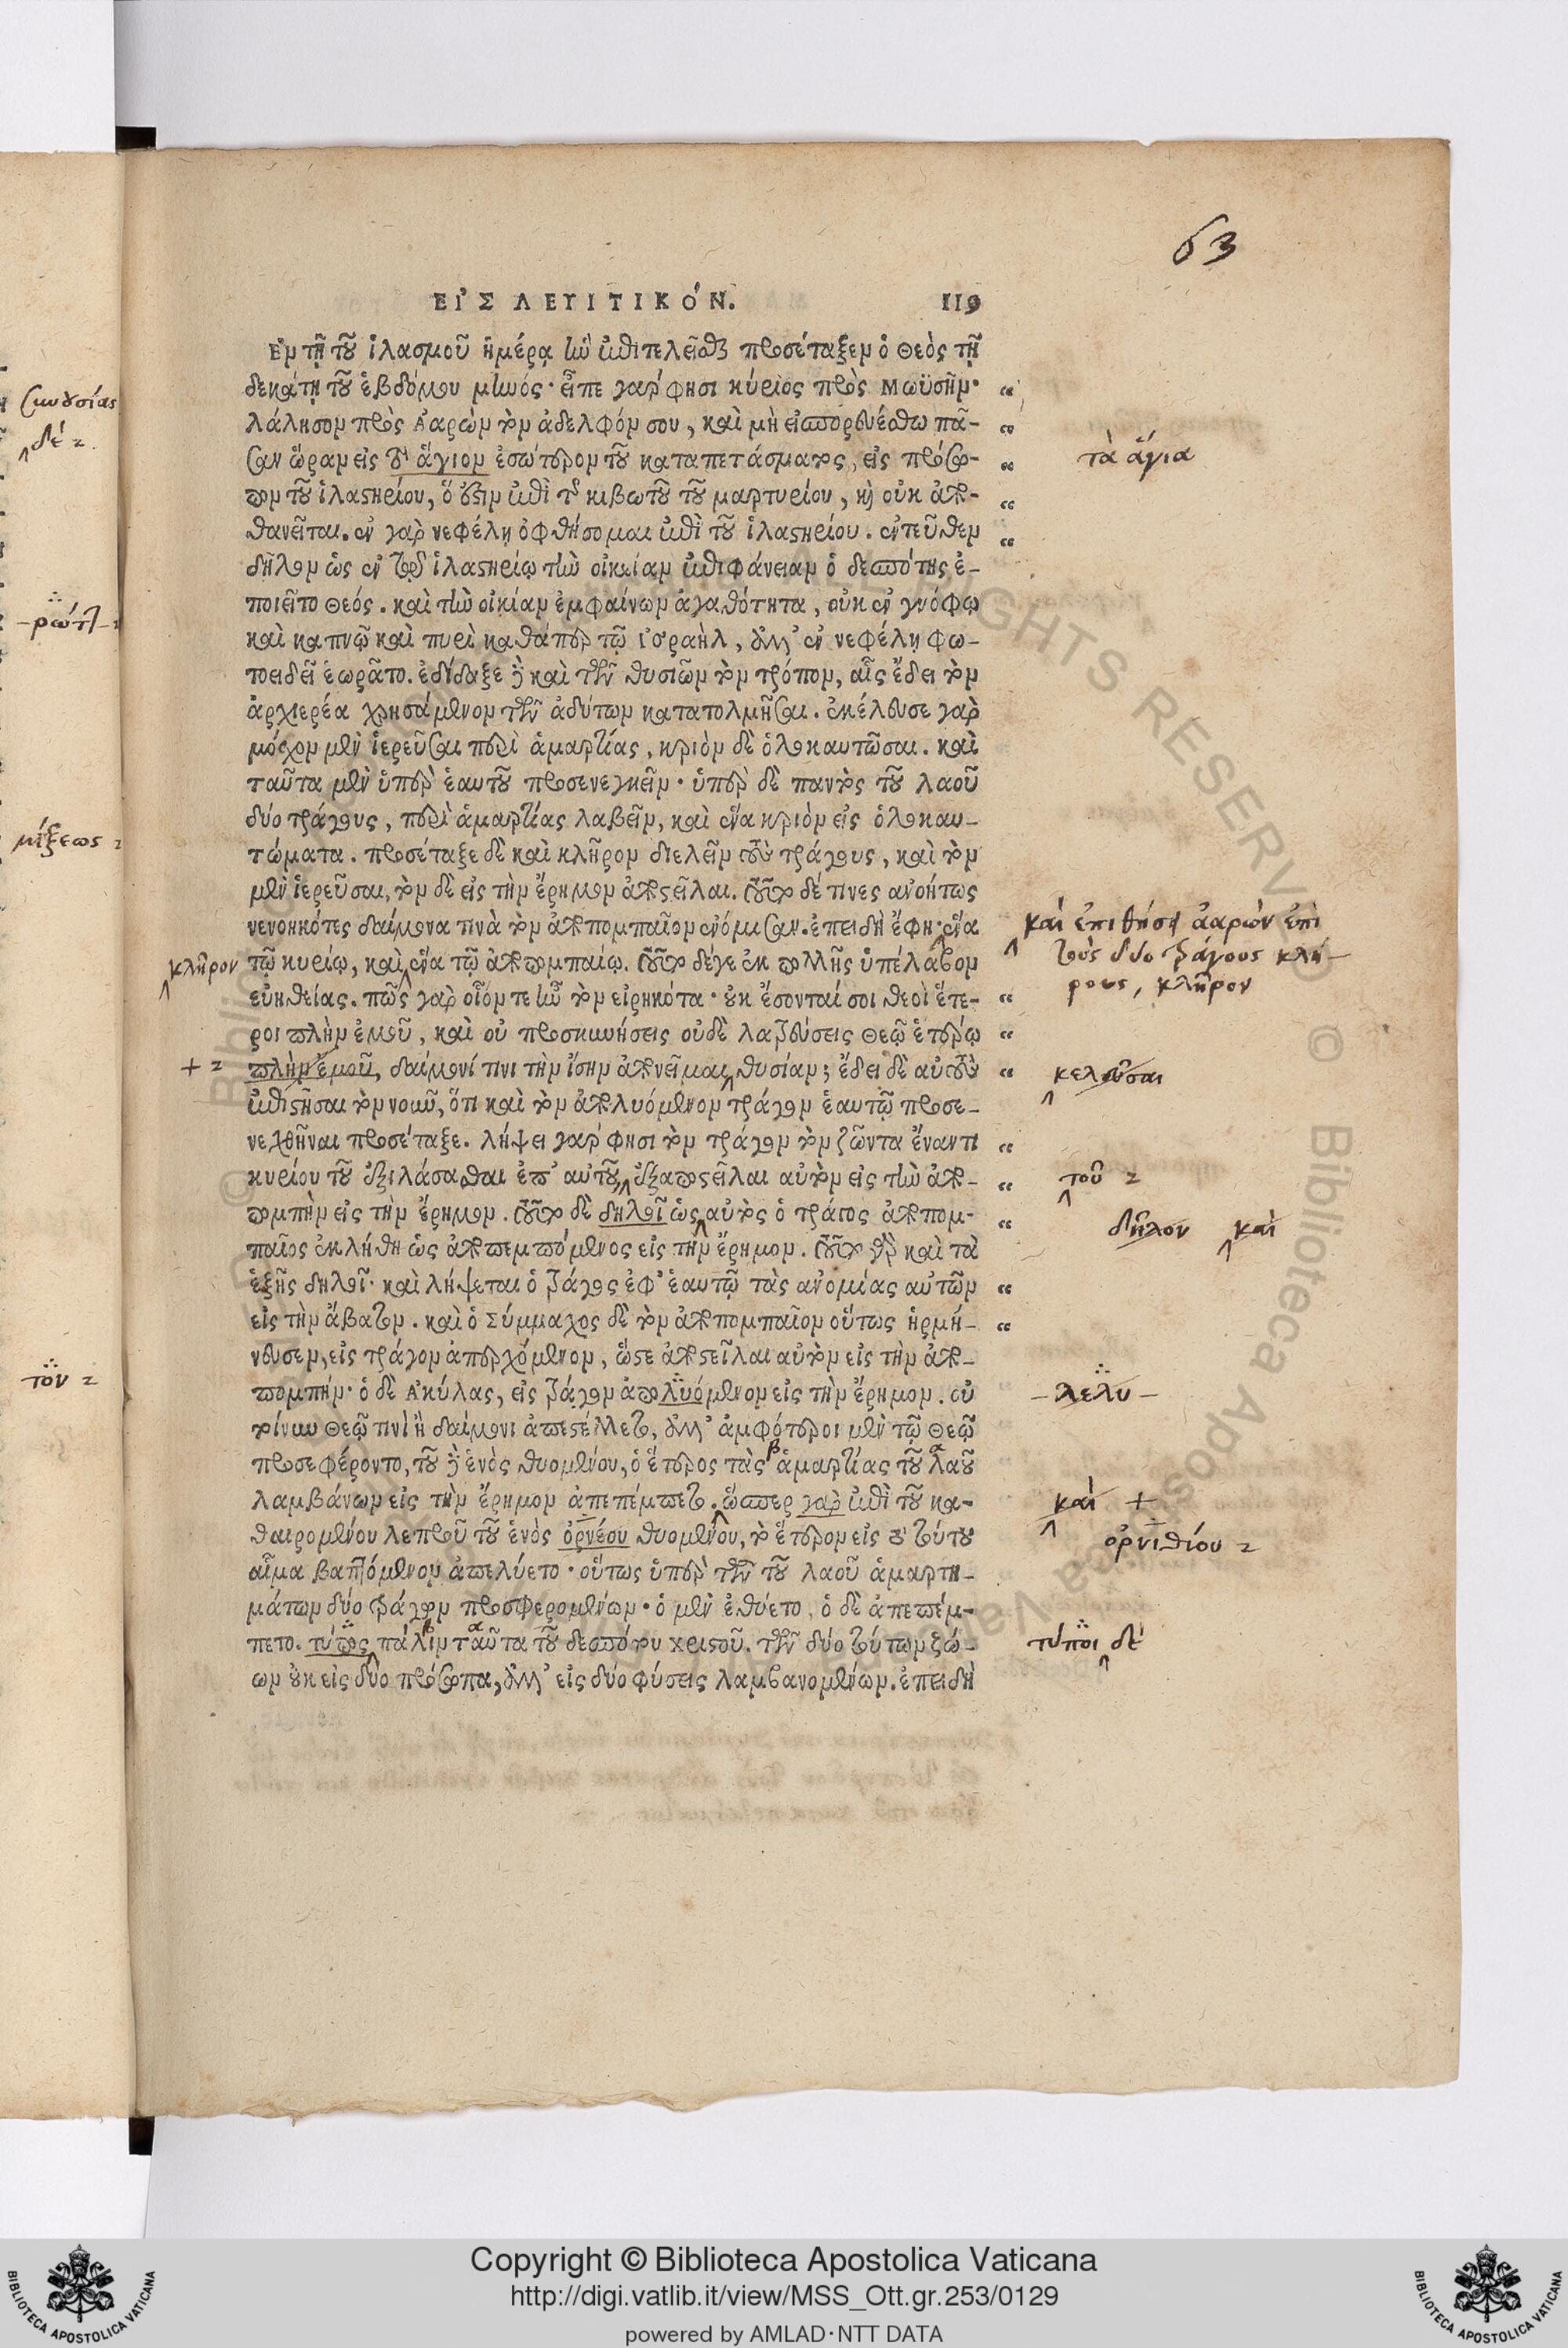 63
ΕΙ'Σ ΛΕΥΙΤΙΚΟ'Ν. 119
Ἐν τῇ τοῦ ἱλασμοῦ ἡμέρᾳ ἣν ἐπιτελεῖσθαι προσέταξεν ὁ Θεὸς τῇ
δεκάτῃ τοῦ ἑβδόμου μηνός· εἶπε γάρ φησι κύριος πρὸς Μωϋσῆν· “
λάλησον πρὸς Ἀαρὼν τὸν ἀδελφόν σου, καὶ μὴ εἰσπορευέσθω πᾶ- “
σαν ὥραν εἰς τὸ ἅγιον ἐσώτερον τοῦ καταπετάσματος, εἰς πρόσω- “ τὰ ἅγια
πον τοῦ ἱλαστηρίου, ὅ ἐστιν ἐπὶ τῆς κιβωτοῦ τοῦ μαρτυρίου, καὶ οὐκ ἀπο- “
θανεῖται. ἐν γὰρ νεφέλῃ ὀφθήσομαι ἐπὶ τοῦ ἱλαστηρίου. ἐντεῦθεν “
δῆλον ὡς ἐν τῷ ἱλαστηρίῳ τὴν οἰκείαν ἐπιφάνειαν ὁ δεσπότης ἐ-
ποιεῖτο Θεός. καὶ τὴν οἰκίαν ἐμφαίνων ἀγαθότητα, οὐκ ἐν γνόφῳ
καὶ καπνῷ καὶ πυρὶ καθάπερ τῷ ἰσραὴλ, ἀλλ' ἐν νεφέλῃ φω-
τοειδεῖ ἑωρᾶτο. ἐδίδαξε δὲ καὶ τῶν θυσιῶν τὸν τρόπον, αἷς ἔδει τὸν
ἀρχιερέα χρησάμενον τῶν ἀδύτων κατατολμῆσαι. ἐκέλευσε γὰρ
μόσχον μὲν ἱερεῦσαι περὶ ἁμαρτίας, κριὸν δὲ ὁλοκαυτῶσαι. καὶ
ταῦτα μὲν ὑπὲρ ἑαυτοῦ προσενεγκεῖν· ὑπὲρ δὲ παντὸς τοῦ λαοῦ
δύο τράγους, περὶ ἁμαρτίας λαβεῖν, καὶ ἕνα κριὸν εἰς ὁλοκαυ-
τώματα. προσέταξε δὲ καὶ κλῆρον διελεῖν τοὺς τράγους, καὶ τὸν
μὲν ἱερεῦσαι, τὸν δὲ εἰς τὴν ἔρημον ἀποστεῖλαι. τοῦτο δέ τινες ἀνοήτως
νενοηκότες δαίμονα τινὰ τὸν ἀποπομπαῖον ἐνόμισαν. ἐπειδὴ ἔφη· ἕνα καὶ ἐπιθήσει ἀαρὼν ἐπὶ
κλῆρον τῷ κυρίῳ, καὶ ἕνα τῷ ἀποπομπαίῳ. τοῦτο δέ γε ἐκ πολλῆς ὑπέλαβον τοὺς δύο τράγους κλή-
εὐηθείας. πῶς γὰρ οἷόν τε ἦν τὸν εἰρηκότα· οὐκ ἔσονταί σοι θεοὶ ἕτε- “ ρους, κλῆρον
ροι πλὴν ἐμοῦ, καὶ οὐ προσκυνήσεις οὐδὲ λατρεύσεις Θεῷ ἑτέρῳ “
+ πλὴν ἐμοῦ, δαίμονί τινι τὴν ἴσην ἀπονεῖμαι θυσίαν; ἔδει δὲ αὐτοὺς “ κελεῦσαι
ἐπιστῆσαι τὸν νοῦν, ὅτι καὶ τὸν ἀπολυόμενον τράγον ἑαυτῷ προσε-
νεχθῆναι προσέταξε. λήψει γάρ φησι τὸν τράγον τὸν ζῶντα ἔναντι “
κυρίου τοῦ ἐξιλάσασθαι ἐπ' αὐτοῦ, ἐξαποστεῖλαι αὐτὸν εἰς τὴν ἀπο- “ τοῦ
πομπὴν εἰς τὴν ἔρημον. τοῦτο δὲ δηλοῖ ὡς αὐτὸς ὁ τράγος ἀποπομ- “ δῆλον καὶ
παῖος ἐκλήθη ὡς ἀποπεμπόμενος εἰς τὴν ἔρημον. τοῦτο γὰρ καὶ τὰ
ἑξῆς δηλοῖ· καὶ λήψεται ὁ τράγος ἐφ' ἑαυτῷ τὰς ἀνομίας αὐτῶν “
εἰς τὴν ἄβατον. καὶ ὁ Σύμμαχος δὲ τὸν ἀποπομπαῖον οὕτως ἡρμή- “
νευσεν, εἰς τράγον ἀπερχόμενον, ὥστε ἀποστεῖλαι αὐτὸν εἰς τὴν ἀπο-
πομπήν· ὁ δὲ Ἀκύλας, εἰς τράγον ἀπολυόμενον εἰς τὴν ἔρημον. οὐ -λελυ-
τοίνυν Θεῷ τινὶ ἢ δαίμονι ἀπεστέλλετο, ἀλλ' ἀμφότεροι μὲν τῷ Θεῷ
προσεφέροντο, τοῦ δὲ ἑνὸς θυομένου, ὁ ἕτερος τὰς ἁμαρτίας τοῦ λαοῦ
λαμβάνων εἰς τὴν ἔρημον ἀπεπέμπετο. ὥσπερ γὰρ ἐπὶ τοῦ κα- καὶ +
θαιρομένου λεπροῦ τοῦ ἑνὸς ὀρνέου θυομένου, τὸ ἕτερον εἰς τὸ τούτου ὀρνιθίου
αἷμα βαπτόμενον ἀπελύετο· οὕτως ὑπὲρ τῶν τοῦ λαοῦ ἁμαρτη-
μάτων δύο τράγων προσφερομένων· ὁ μὲν ἐθύετο, ὁ δὲ ἀπεπέμ-
πετο. τύπος πάλιν ταῦτα τοῦ δεσπότου χριστοῦ. τῶν δύο τούτων ζώ- τύποι δὲ
ων οὐκ εἰς δύο πρόσωπα, ἀλλ' εἰς δύο φύσεις λαμβανομένων. ἐπειδὴ
δέ
-ρώτ-
μίξεως
τὸν
Copyright © Biblioteca Apostolica Vaticana
http://digi.vatlib.it/view/MSS_Ott.gr.253/0129
powered by AMLAD·NTT DATA
BIBLIOTECA APOSTOLICA VATICANA
BIBLIOTECA APOSTOLICA VATICANA